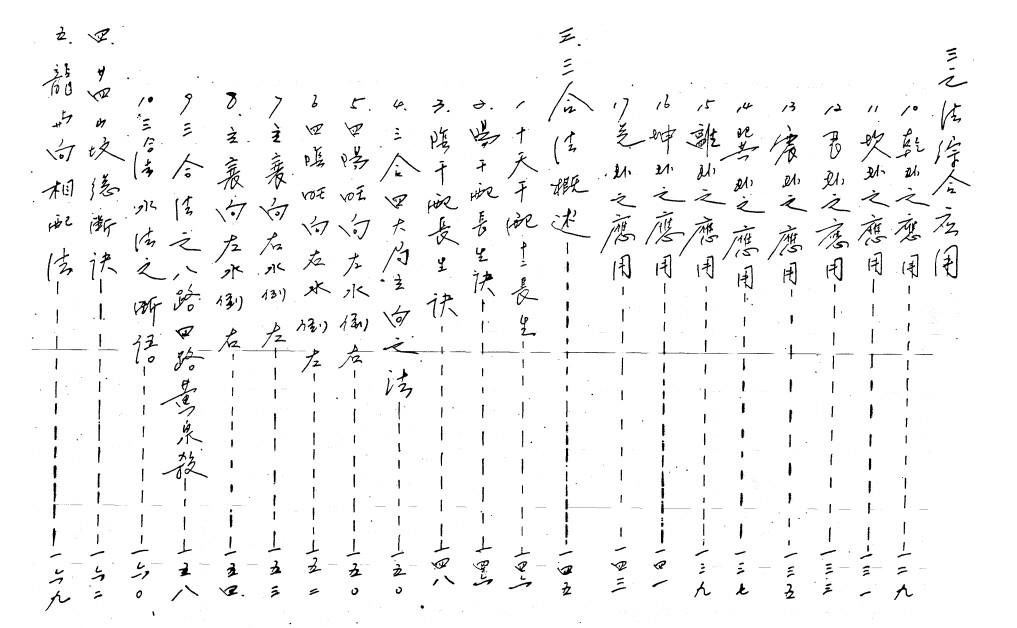 三元法綜合应用
10.乾卦之應用 一二九
11.坎卦之應用 一三一
12.艮卦之應用 一三三
13.震卦之應用 一三五
14.巽卦之應用 一三七
15.離卦之應用 一三九
16.坤卦之應用 一四一
17.兌卦之應用 一四三
三.三合法概述 一四五
1.十天干配十二長生 一四六
2.陽干配長生訣 一四六
3.陰干配長生訣 一四八
4.三合四大局主向之法 一五〇
5.四陽旺向左水倒右 一五〇
6.四陰旺向右水倒左 一五二
7.主衰向右水倒左 一五三
8.主衰向左水倒右 一五四
9.三合法之八路四路黃泉殺 一五八
10.三合法水法之断语 一六〇
四.廿四山坟总断诀 一六二
五.龍与向相配法 一六九